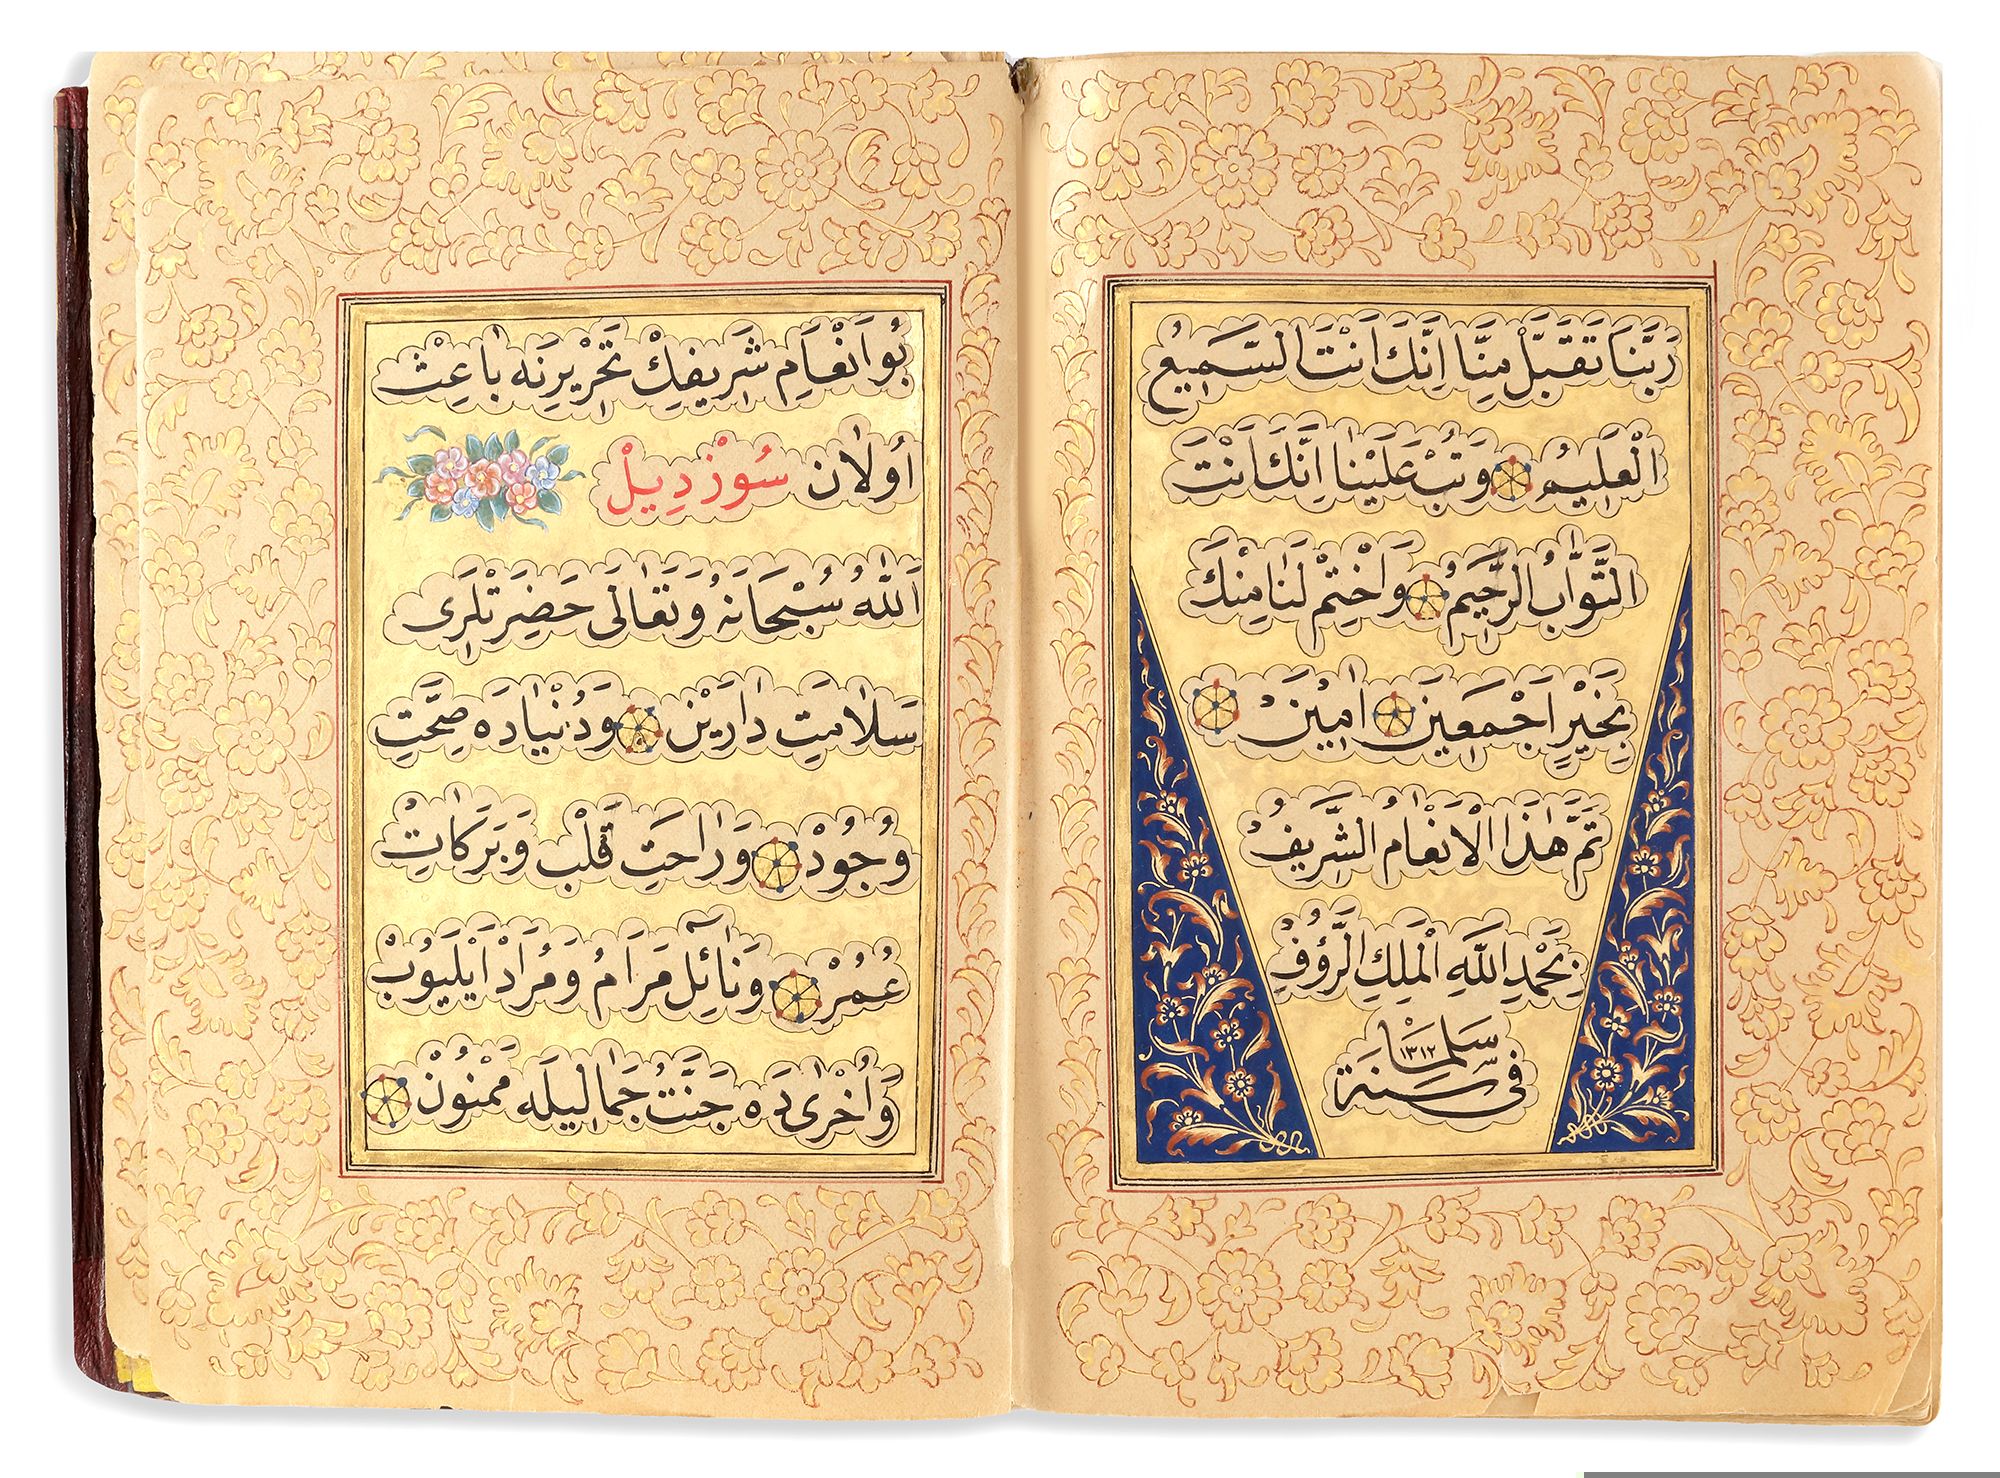 رَبَّنَا تَقَبَّلْ مِنَّا اِنَّكَ اَنْتَ السَّمِيعُ
الْعَلِيمُ وَتُبْ عَلَيْنَا اِنَّكَ اَنْتَ
التَّوَّابُ الرَّحِيمُ وَاخْتِمْ لَنَا مِنْكَ
بِخَيْرٍ اَجْمَعِينَ اٰمِينَ
تَمَّ هٰذَا الْاَنْعَامُ الشَّرِيفُ
بِحَمْدِ اللّٰهِ الْمَلِكِ الرَّؤُفِ
فى سنة ١٣١٢
بُو اَنْعَامِ شَرِيفِكْ تَحْرِيرِنَه بَاعِثْ
اُولَانْ سُوْزدِيلْ
اَللّٰهُ سُبْحَانَهُ وَتَعَالٰى حَضِرَتْلَرِى
سَلَامَتِ دَارَيْنْ وَدُنْيَادَه صِحَّتِ
وُجُودْ وَرَاحَتِ قَلْبْ وَبَرَكَاتِ
عُمُرْ وَنَائِلِ مَرَامُ وَمُرَادْ اَيْلَيُوبْ
وَاُخْرٰى دَه جَنَّتُ جَمَالِيلَه مَمْنُونْ